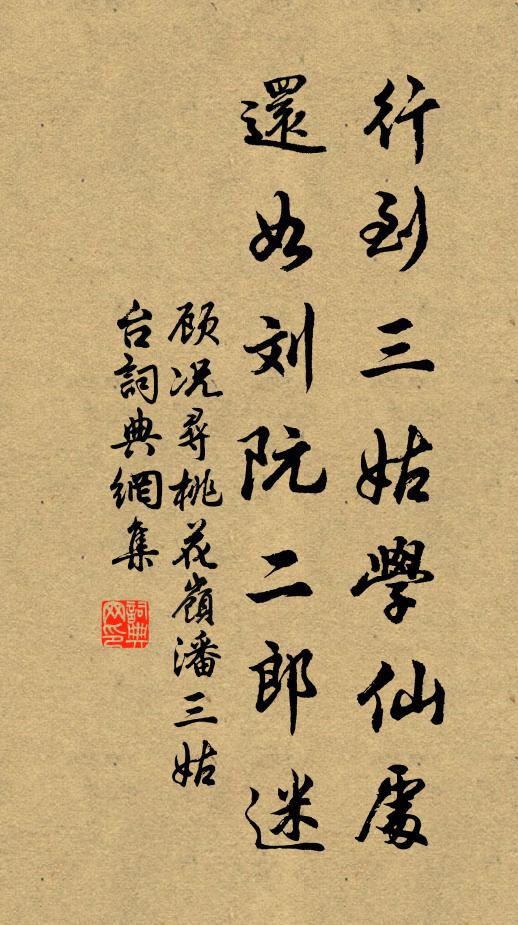 行到三姑學仙處
還如刘阮二郎迷
顾况尋桃花嶺潘三姑
台詞典網集
詞典
网印